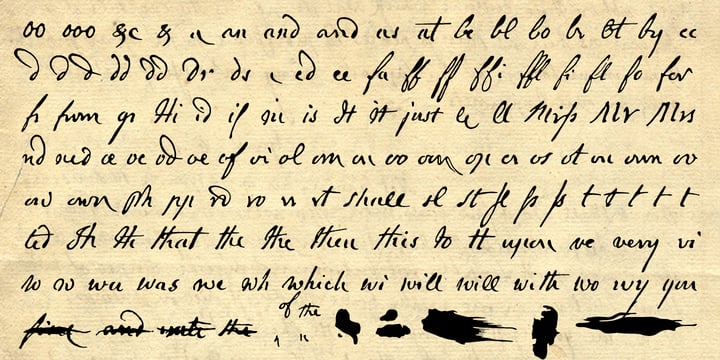 oo ooo &c & a an and and as at be bl bo br bt by cc
d d d dd dd dr ds e ed ee fa ff ff ffi ffl fi fl fo for
fr from gr Hi id if in is It it just le ll Miss Mr Mrs
nd ned oe oe od oe of oi ol om on oo our op or os ot ou own ov
ow own ph pp rd ro rr rt shall sl st ss ss t t t t t
ted Th Th that the the then this to tt upon ve very vi
w w wa was we wh which wi will will with wo wy you
fine and with the of the